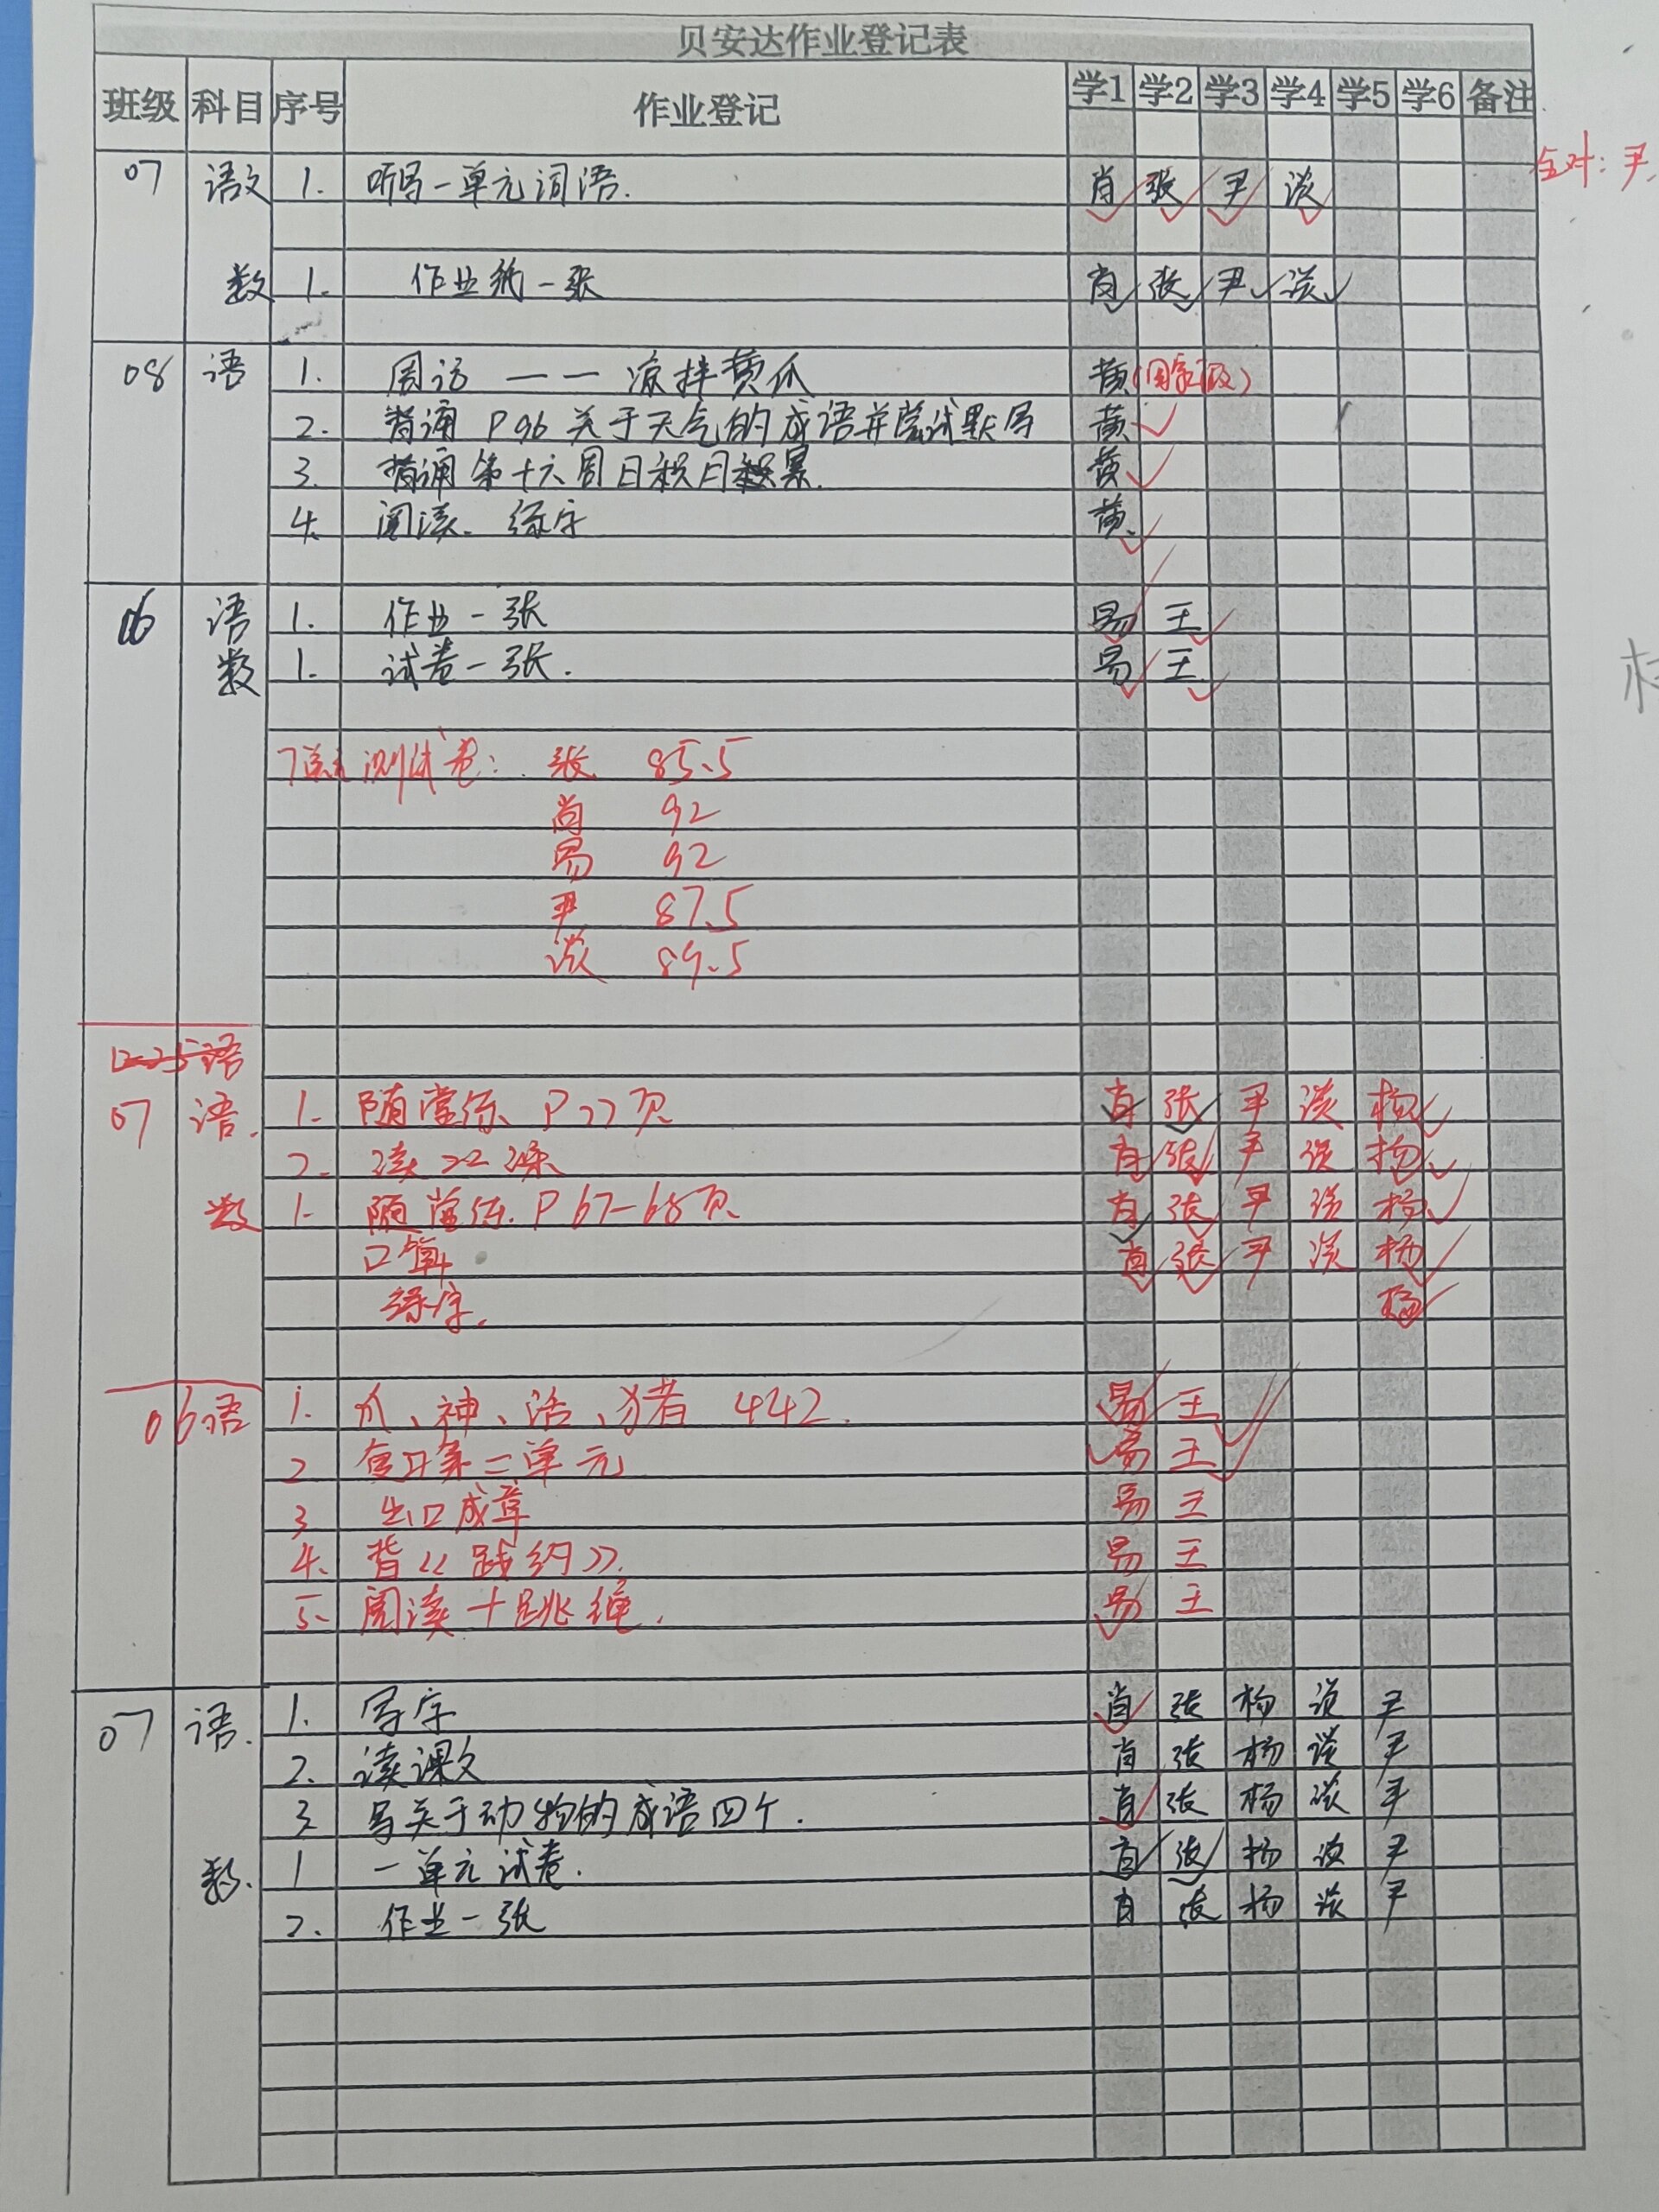 贝安达作业登记表
班级 科目 序号 作业登记 学1 学2 学3 学4 学5 学6 备注
全对：尹
07 语文 1. 听写一单元词语. 肖 张 尹 谈
数 1. 作业纸一张 肖 张 尹 谈
08 语 1. 周记 —— 凉拌黄瓜 黄
2. 背诵 P96 关于天气的成语并尝试默写 黄
3. 背诵第十六周日积月累. 黄
4. 阅读. 练字 黄
06 语 1. 作业一张 易 王
数 1. 试卷一张. 易 王
测试卷： 张 85.5
肖 92
易 92
尹 87.5
谈 89.5
12-25 语
07 语. 1. 随堂练 P77页 肖 张 尹 谈 杨
2. 读22课 肖 张 尹 谈 杨
数 1. 随堂练. P67-68页 肖 张 尹 谈 杨
口算 肖 张 尹 谈 杨
练字. 杨
06 语 1. 爪、神、活、猪 442. 易 王
2 复习第二单元 易 王
3 出口成章 易 王
4. 背《践约》. 易 王
5. 阅读+跳绳. 易 王
07 语. 1. 写字 肖 张 杨 谈 尹
2. 读课文 肖 张 杨 谈 尹
3 写关于动物的成语四个. 肖 张 杨 谈 尹
数. 1 一单元试卷. 肖 张 杨 谈 尹
2. 作业一张 肖 张 杨 谈 尹